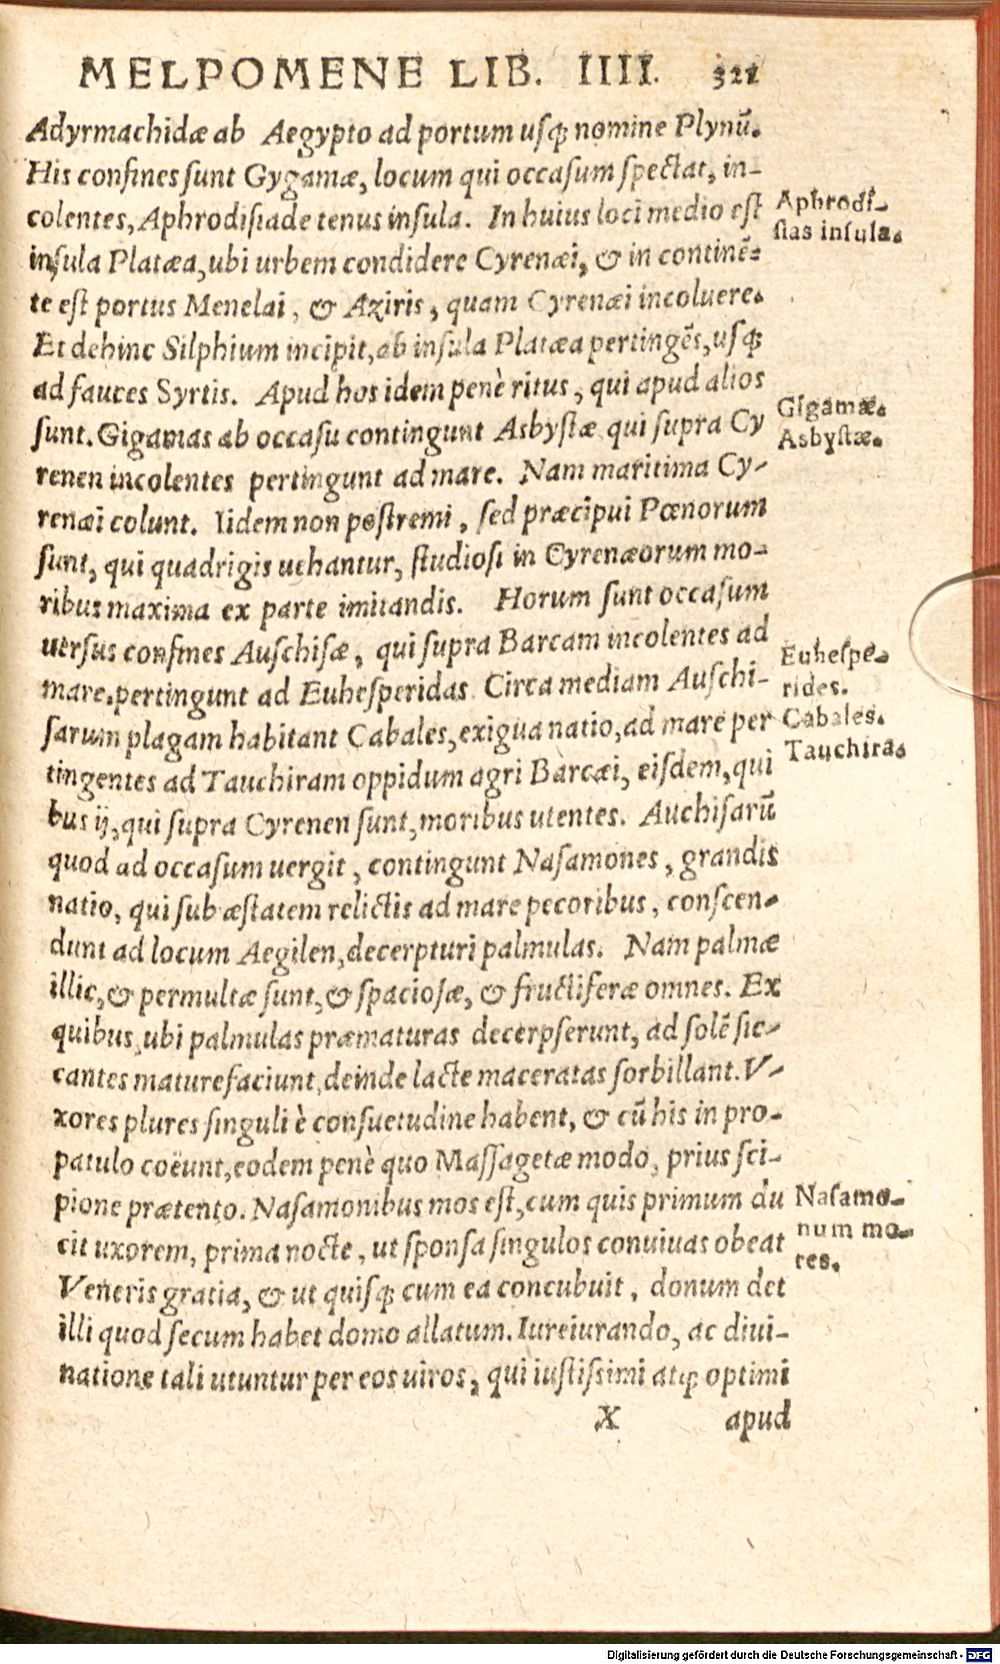 MELPOMENE LIB. IIII. 321
Adyrmachidæ ab Aegypto ad portum usq; nomine Plynũ.
His confines sunt Gygamæ, locum qui occasum spectat, in-
colentes, Aphrodisiade tenus insula. In huius loci medio est
insula Platæa, ubi urbem condidere Cyrenæi, & in continẽ-
te est portus Menelai, & Aziris, quam Cyrenæi incoluere.
Et dehinc Silphium incipit, ab insula Platæa pertingẽs, usq;
ad fauces Syrtis. Apud hos idem penè ritus, qui apud alios
sunt. Gigamas ab occasu contingunt Asbystæ qui supra Cy
renen incolentes pertingunt ad mare. Nam maritima Cy-
renæi colunt. Iidem non postremi, sed præcipui Pœnorum
sunt, qui quadrigis uehantur, studiosi in Cyrenæorum mo-
ribus maxima ex parte imitandis. Horum sunt occasum
uersus confines Auschisæ, qui supra Barcam incolentes ad
mare.pertingunt ad Euhesperidas. Circa mediam Auschi-
sarum plagam habitant Cabales, exigua natio, ad mare per
tingentes ad Tauchiram oppidum agri Barcæi, eisdem, qui
bus ij, qui supra Cyrenen sunt, moribus utentes. Auchisarũ
quod ad occasum uergit, contingunt Nasamones, grandis
natio, qui sub æstatem relictis ad mare pecoribus, conscen-
dunt ad locum Aegilen, decerpturi palmulas. Nam palmæ
illic, & permultæ sunt, & spaciosæ, & fructiferæ omnes. Ex
quibus, ubi palmulas præmaturas decerpserunt, ad solẽ sic-
cantes maturefaciunt, deinde lacte maceratas sorbillant. V-
xores plures singuli è consuetudine habent, & cũ his in pro-
patulo coëunt, eodem penè quo Massagetæ modo, prius sci-
pione prætento. Nasamonibus mos est, cum quis primum du
cit uxorem, prima nocte, ut sponsa singulos conuiuas obeat
Veneris gratia, & ut quisq; cum ea concubuit, donum det
illi quod secum habet domo allatum. Iureiurando, ac diui-
natione tali utuntur per eos uiros, qui iustissimi atq; optimi
X apud
Aphrodi-
sias insula.
Gigamæ.
Asbystæ.
Euhespe-
rides.
Cabales.
Tauchira.
Nasamo-
num mo-
res.
Digitalisierung gefördert durch die Deutsche Forschungsgemeinschaft - DFG